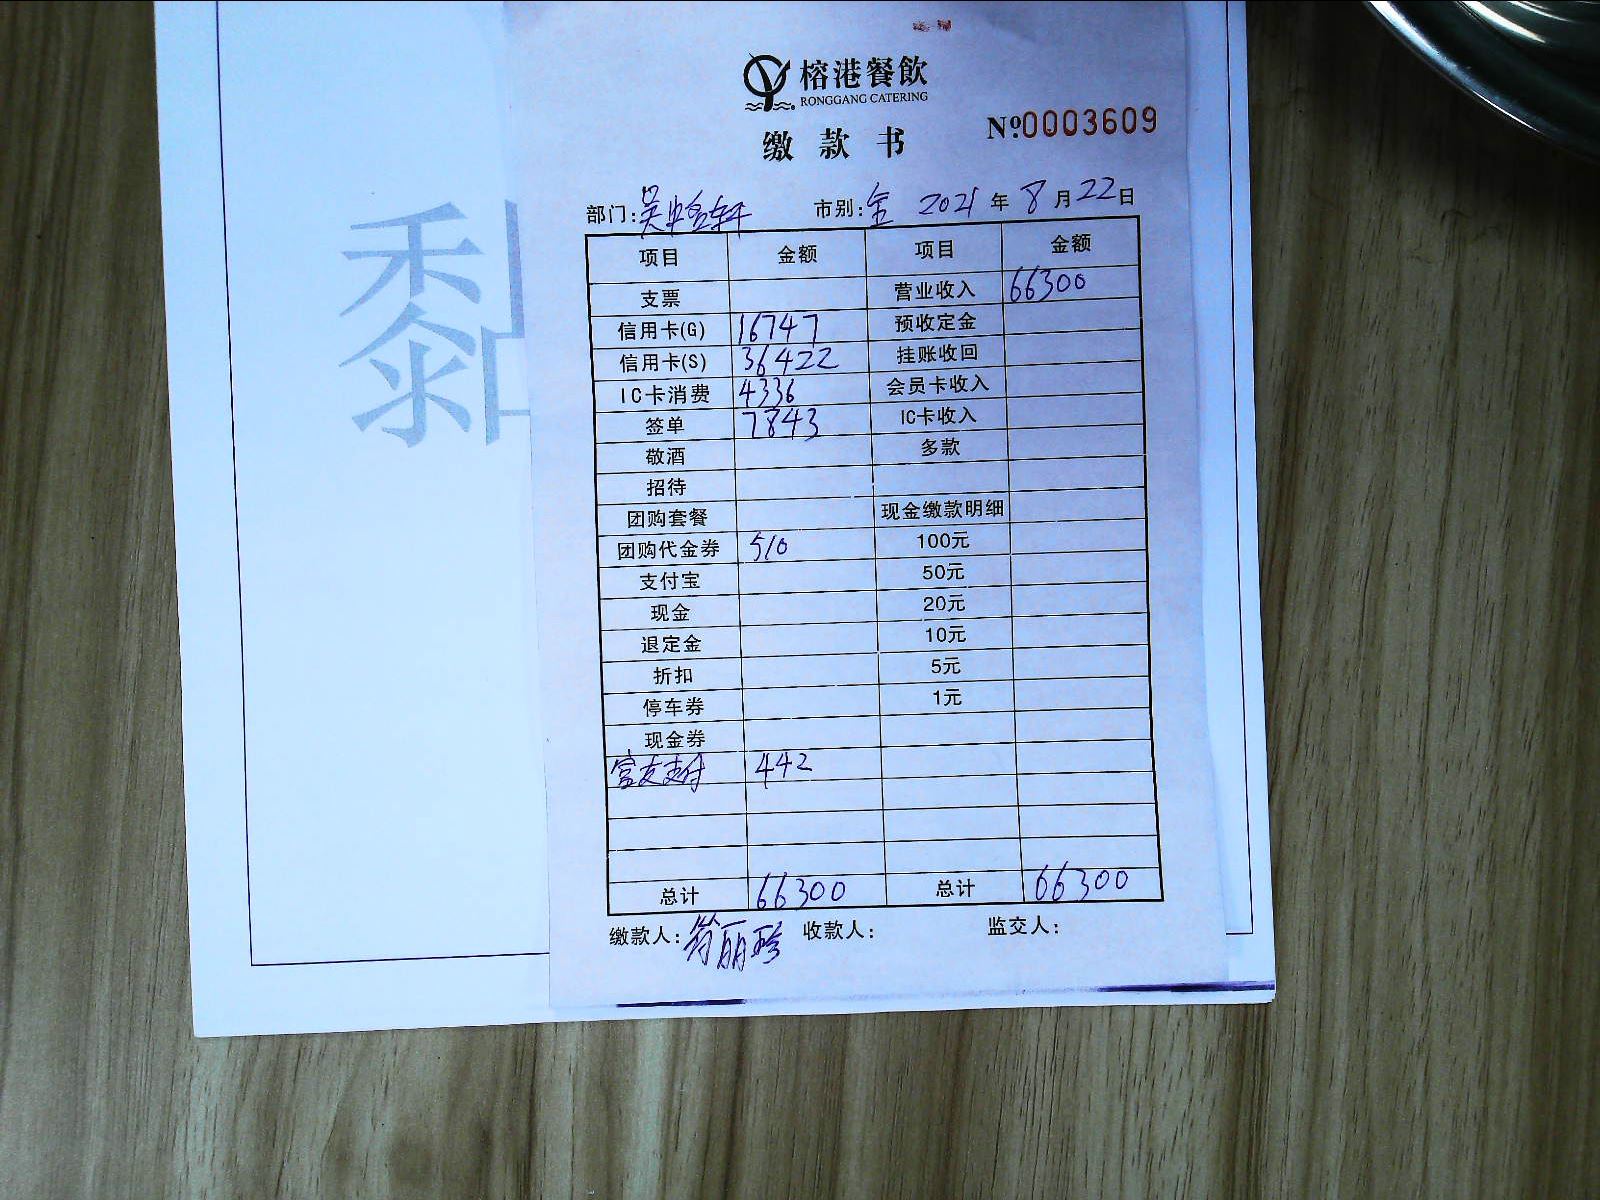 榕港餐飲
RONGGANG CATERING
缴款书 №0003609
部门: 市别:全 2021年8月22日
项目 金额 项目 金额
支票 营业收入 66300
信用卡(G) 16747 预收定金
信用卡(S) 36422 挂账收回
IC卡消费 4336 会员卡收入
签单 7843 IC卡收入
敬酒 多款
招待
团购套餐 现金缴款明细
团购代金券 510 100元
支付宝 50元
现金 20元
退定金 10元
折扣 5元
停车券 1元
现金券
富友支付 442
总计 66300 总计 66300
缴款人:翁丽珍 收款人: 监交人: